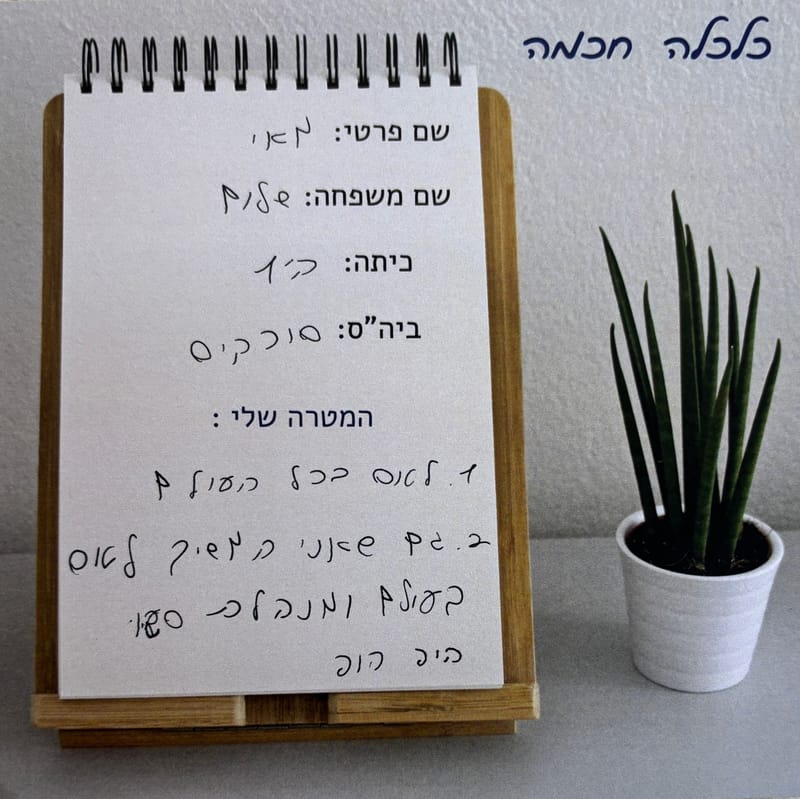 כלכלה חכמה
שם פרטי: מאי
שם משפחה: שלום
כיתה: ה'1
ביה"ס: סורקיס
המטרה שלי :
1. לאוס בכל העולם
2. גם שאני המשיך לאוס
בעולם ומנהלת
היפ הופ